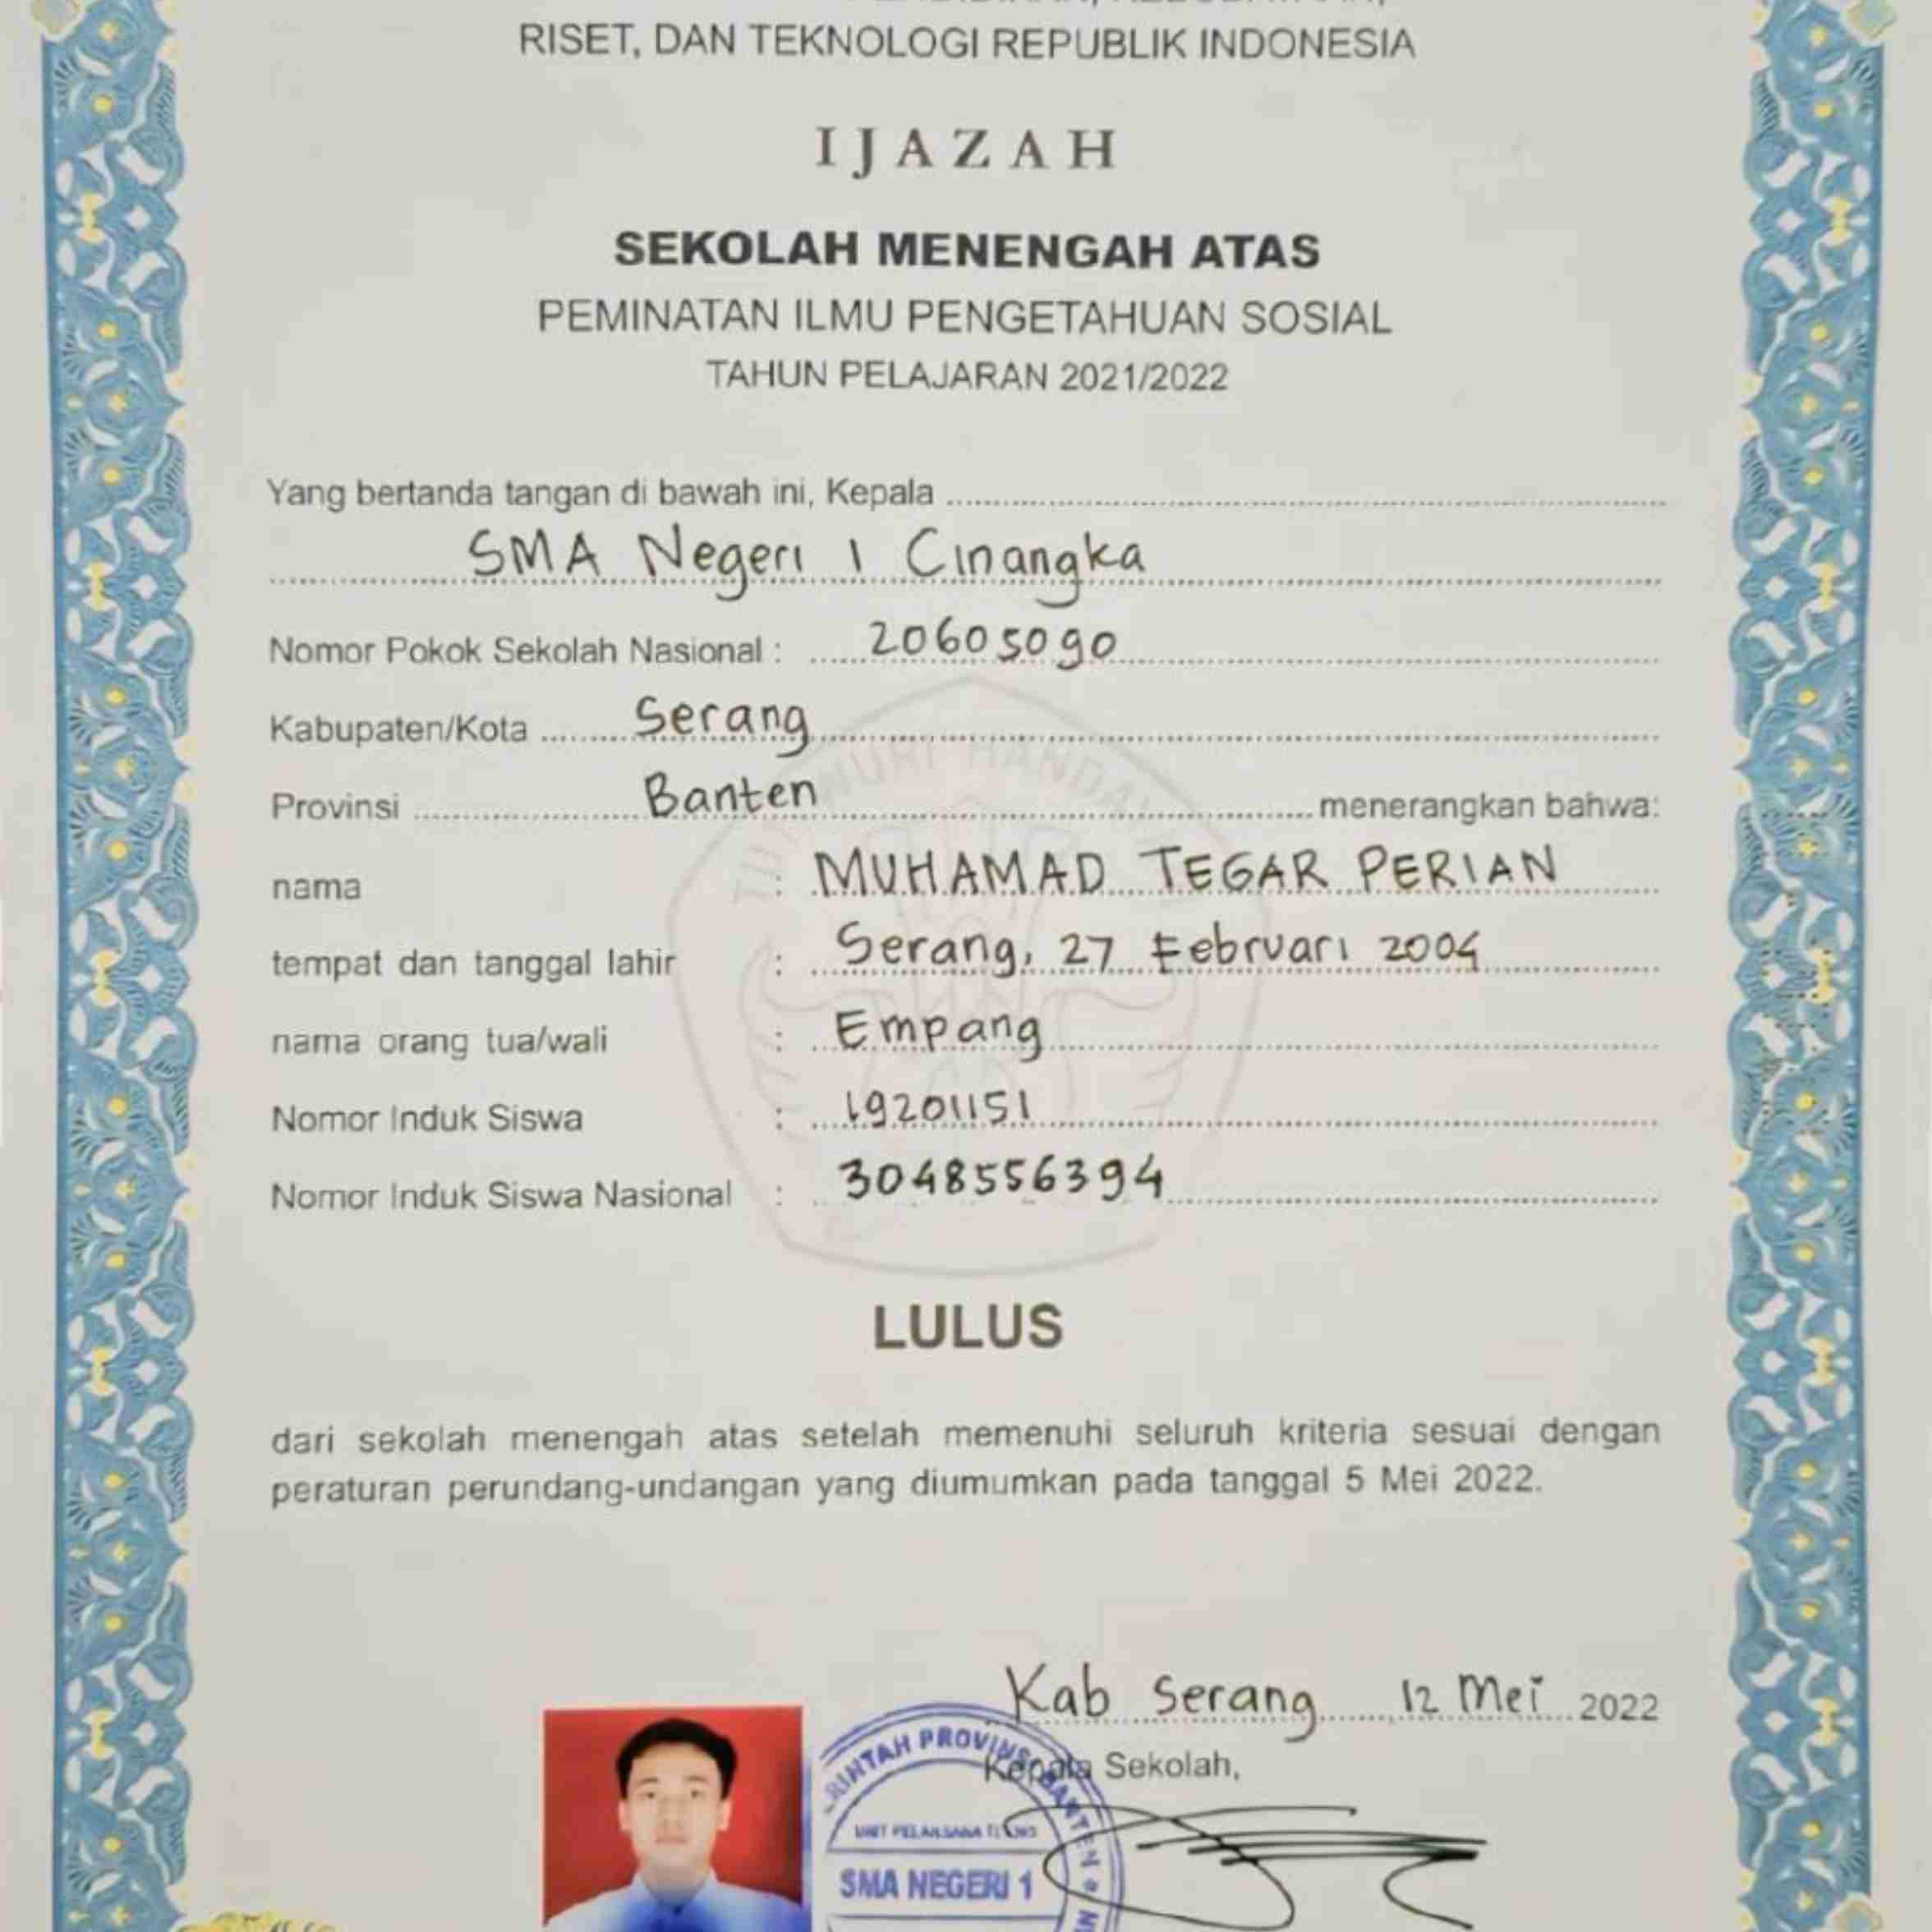 RISET, DAN TEKNOLOGI REPUBLIK INDONESIA
IJAZAH
SEKOLAH MENENGAH ATAS
PEMINATAN ILMU PENGETAHUAN SOSIAL
TAHUN PELAJARAN 2021/2022
Yang bertanda tangan di bawah ini, Kepala
SMA Negeri 1 Cinangka
Nomor Pokok Sekolah Nasional : 20605090
Kabupaten/Kota Serang
Provinsi Banten menerangkan bahwa:
nama : MUHAMAD TEGAR PERIAN
tempat dan tanggal lahir : Serang, 27 Februari 2004
nama orang tua/wali : Empang
Nomor Induk Siswa : 19201151
Nomor Induk Siswa Nasional : 3048556394
LULUS
dari sekolah menengah atas setelah memenuhi seluruh kriteria sesuai dengan
peraturan perundang-undangan yang diumumkan pada tanggal 5 Mei 2022.
Kab Serang, 12 Mei 2022
Kepala Sekolah,
PROVINSI BANTEN
SMA NEGERI 1